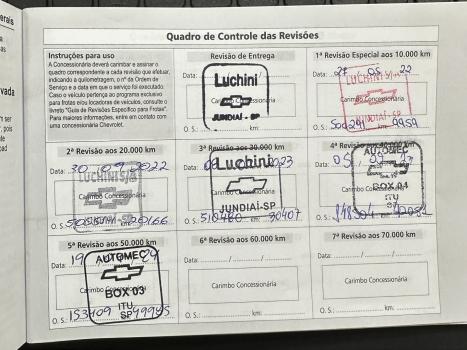 Quadro de Controle das Revisões
Instruções para uso
A Concessionária deverá carimbar e assinar o
quadro correspondente a cada revisão que efetuar,
indicando a quilometragem, o nº da Ordem de
Serviço e a data em que o serviço foi executado.
Caso o veículo pertença ao programa exclusivo
para frotas e/ou locadoras de veículos, consulte o
livreto "Guia de Revisões Específico para Frotas".
Para maiores informações, entre em contato com
uma concessionária Chevrolet.
Revisão de Entrega
Data:
Luchini
Carimbo Concessionária
JUNDIAÍ - SP
1ª Revisão Especial aos 10.000 km
Data: 27 05 22
LUCHINI
Carimbo Concessionária
JUNDIAÍ-SP
O. S.: km: 9959
2ª Revisão aos 20.000 km
Data: 30 09 2022
LUCHINI
Carimbo Concessionária
O. S.: 20166
3ª Revisão aos 30.000 km
Data: 2023
Luchini
JUNDIAÍ-SP
O. S.: 510480 30407
4ª Revisão aos 40.000 km
Data: 05
AUTOMEC
Carimbo Concessionária
BOX 04
ITU
SP
O. S.:
5ª Revisão aos 50.000 km
Data: 19
AUTOMEC
Carimbo Concessionária
BOX 03
ITU
SP
O. S.: 153409 49945
6ª Revisão aos 60.000 km
Data: / /
Carimbo Concessionária
O. S.: km:
7ª Revisão aos 70.000 km
Data: / /
Carimbo Concessionária
O. S.: km: